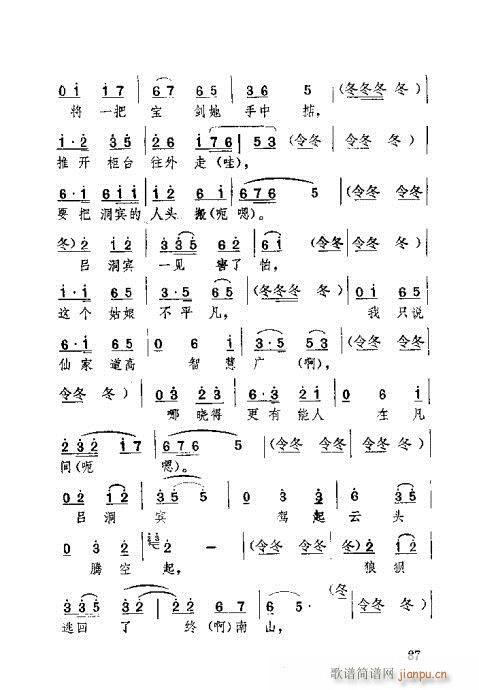 0 i 1 7 | 6 7 6 5 | 3 6 5 | (冬冬冬 冬) |
将一把 宝 剑她 手中 拈,
i · 2 3 5 | 2 6 i 7 6 | 5 3 (令冬 | 令冬 冬) |
推开柜台 往外 走(哇),
6 · i 6 i i | 6 · i 6 5 | 6 7 6 5 | (令冬 令
要把洞宾的 人头 搬(呃 嗯)。
冬) 2 i 2 | 3 3 5 6 2 | 6 i (令冬 | 令冬 冬) |
吕 洞宾 一见 害了 怕,
i · i 6 5 | 3 · 5 6 5 | (冬冬冬 冬) | 0 i 6 5 |
这个 姑娘 不平 凡, 我 只说
6 · i 6 5 | 0 6 i | 3 · 5 3 (令冬
仙家 道高 智慧 广(啊),
令冬 冬) | 0 3 2 3 | 6 · 3 2 i | 0 6 i |
哪 晓得 更有 能人 在 凡
2 3 2 1 7 | 6 7 6 5 | (令冬 令冬 | 令冬 冬) |
间(呃 嗯)。
0 2 i 2 | 3 5 5 | 0 3 3 | 2 3 i 2 |
吕 洞 宾 驾 起 云 头
0 3 2 | 2 – | (令冬 令冬 | 冬) 2 i 2 |
腾 空 起, 狼 狈
3 3 5 i 2 | 2 2 6 7 | 6 5 · (冬 | 令冬 冬) |
逃回 了 终(啊)南 山,
87
歌谱简谱网
jianpu.cn